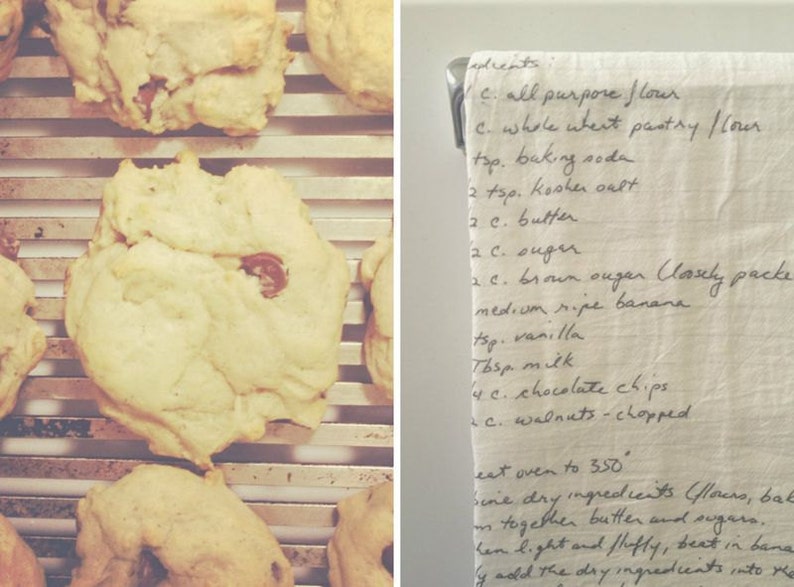 edients:
c. all purpose flour
c. whole wheat pastry flour
tsp. baking soda
2 tsp. kosher salt
2 c. butter
2 c. sugar
2 c. brown sugar (loosely packe
medium ripe banana
tsp. vanilla
Tbsp. milk
4 c. chocolate chips
2 c. walnuts - chopped
eat oven to 350°
bine dry ingredients (flours, bak
m together butter and sugars.
hen light and fluffy, beat in bana
y add the dry ingredients into the